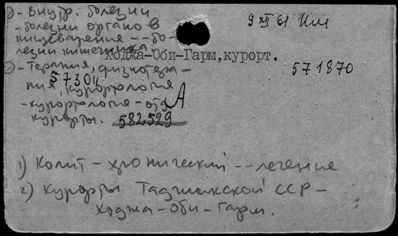 Э - Внутр. болезни
- болезни органов
пищеварения -- бо-
лезни кишечника
9 XI 61 Нм
Ходжа-Оби-Гарм, курорт.
Э - Терапия, физиотера-
571870
57304
пия, курортология
- курортология - отд.
А
курорты.
582529
1) Колит - хронический -- лечение
2) Курорты Таджикской ССР -
Ходжа - Оби - Гарм.